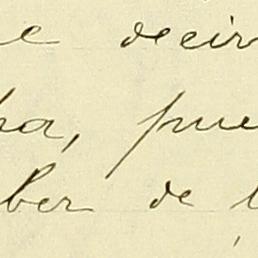 e decir
ha, pue
ber de l